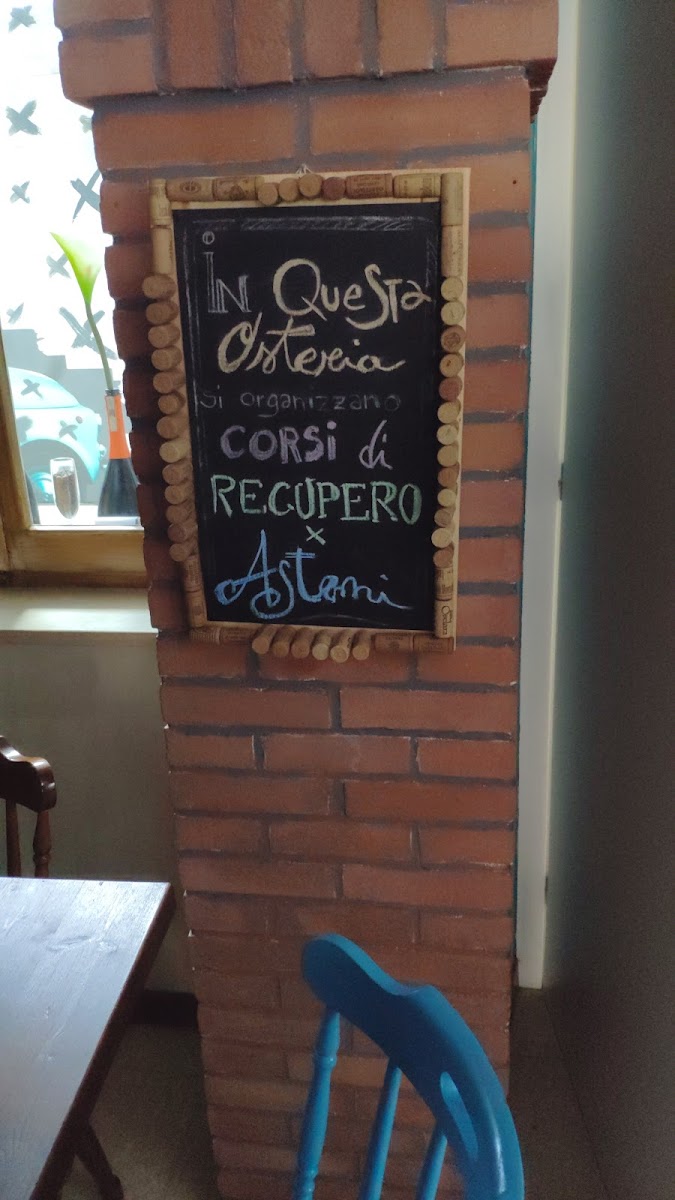 In Questa
Osteria
si organizzano
CORSi di
RECUPERO
x
Astemi